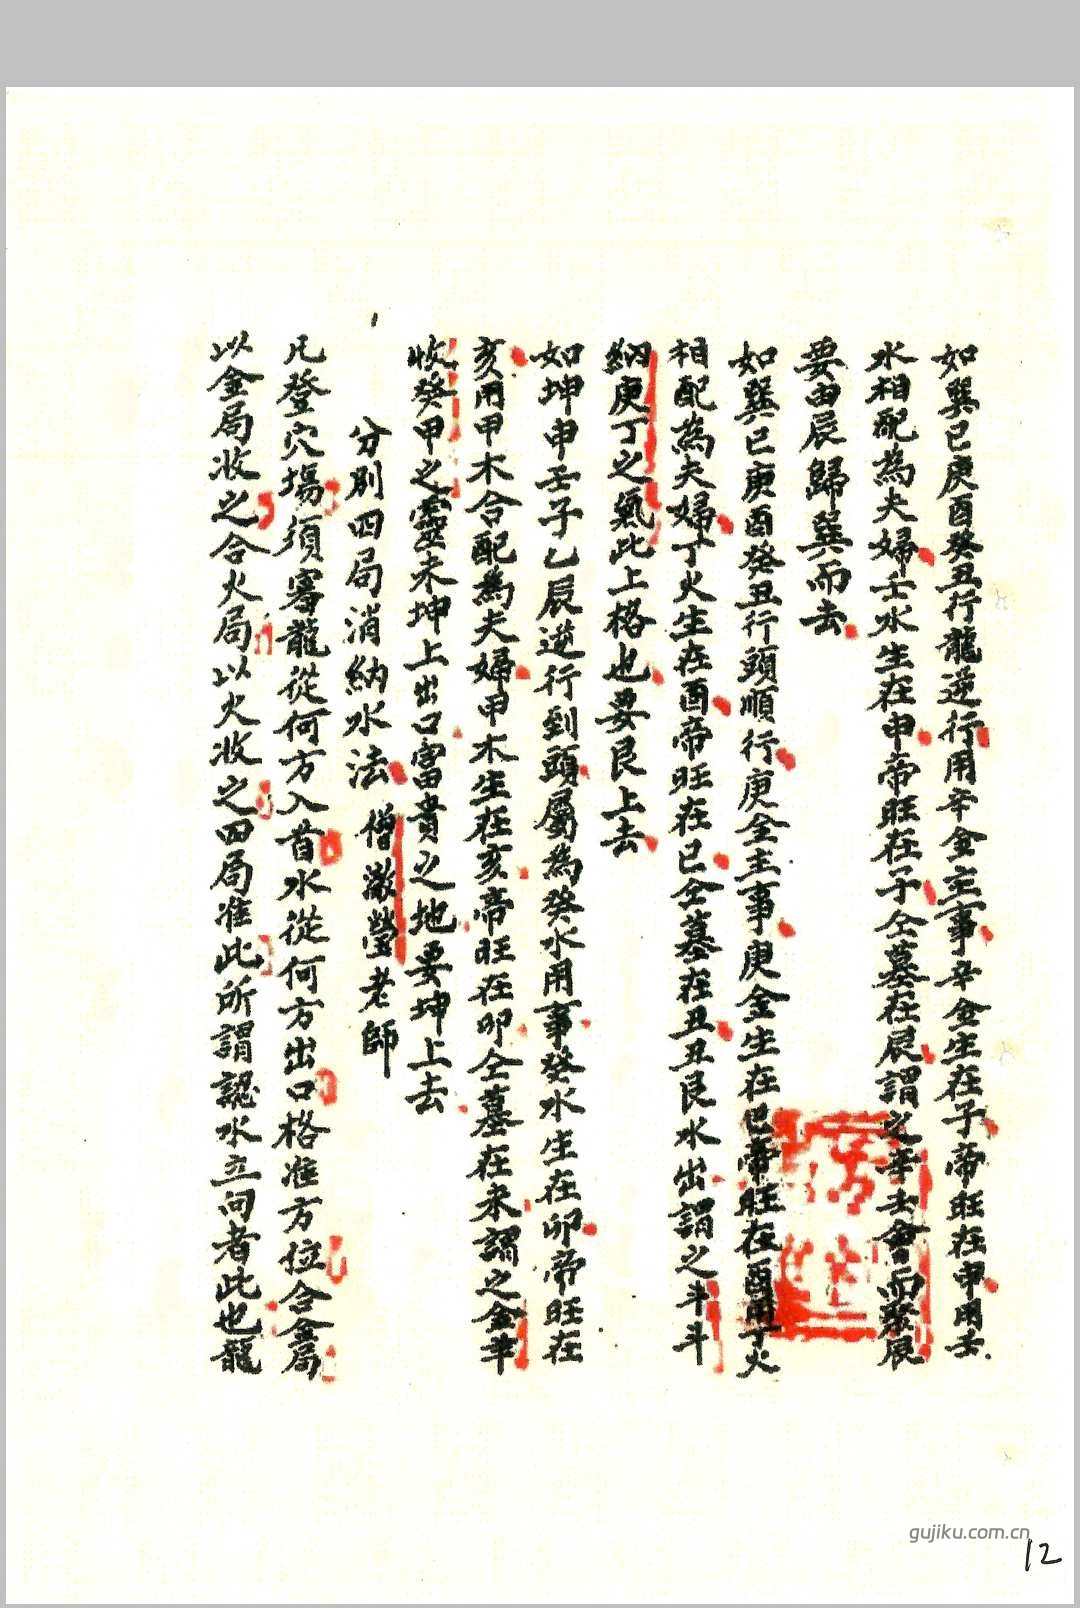 如巽巳庚酉癸丑行龍逆行用辛金主事辛金生在子帝旺在申用壬
水相配為夫婦壬水生在申帝旺在子仝墓在辰謂之辛壬會而聚辰
要由辰歸巽而去
如巽巳庚酉癸丑行頭順行庚金主事庚金生在巳帝旺在酉用丁火
相配為夫婦丁火生在酉帝旺在巳仝墓在丑丑艮水出謂之斗斗
納庚丁之氣此上格也要艮上去
如坤申壬子乙辰逆行到頭屬為癸水用事癸水生在卯帝旺在
亥用甲木合配為夫婦甲木生在亥帝旺在卯仝墓在未謂之金羊
收癸甲之靈未坤上出口富貴之地要坤上去
分別四局消納水法 僧瑩老師
凡登穴場須審龍從何方入首水從何方出口格准方位合金局
以金局收之合火局以火收之四局准此所謂認水立向者此也龍
gujiku.com.cn
12